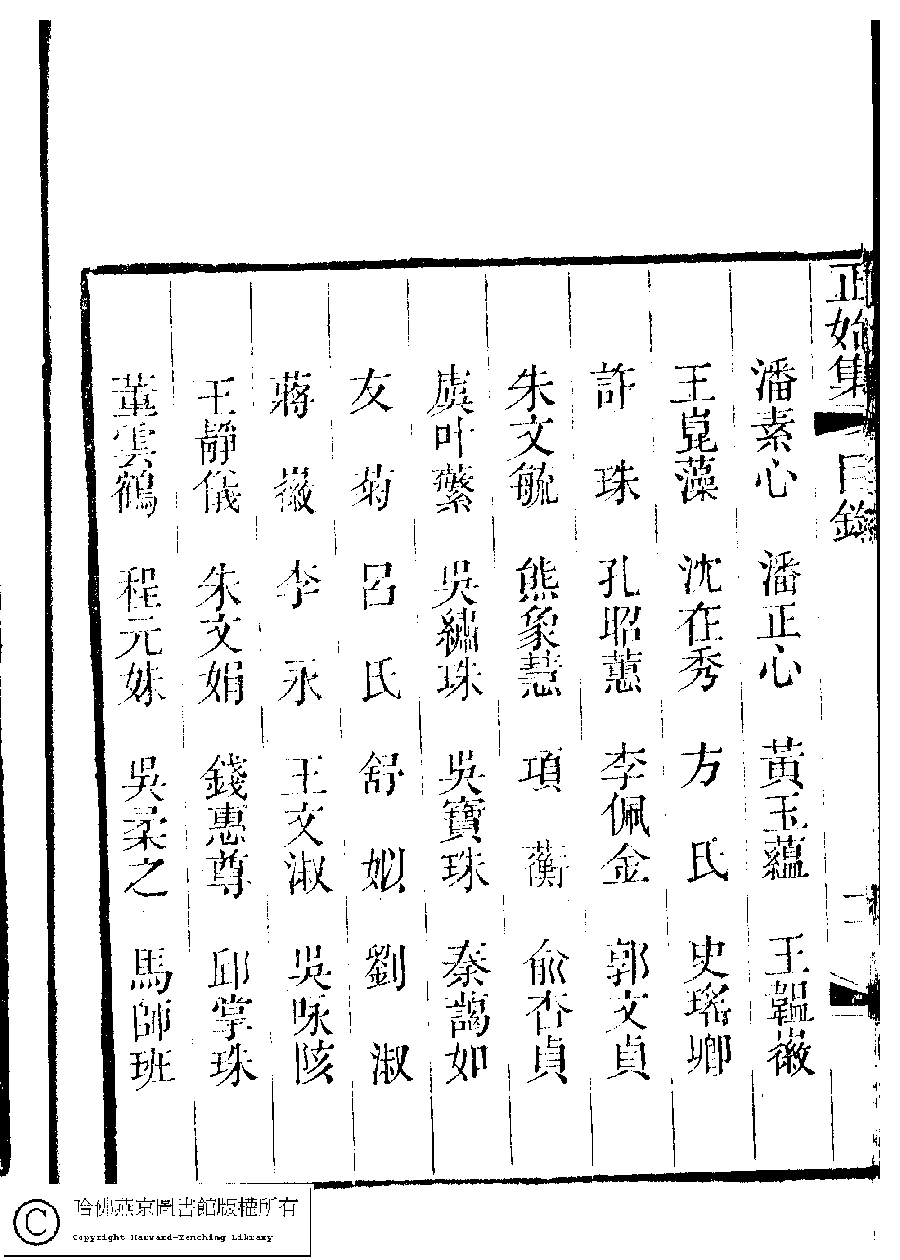 正始集 目錄 二
潘素心 潘正心 黃玉蘊 王韞徽
王崑藻 沈在秀 方氏 史瑤卿
許珠 孔昭蕙 李佩金 郭文貞
朱文毓 熊象慧 項蘅 俞杏貞
虞叶蘩 吳繡珠 吳寶珠 秦藹如
友菊 呂氏 舒姒 劉淑
蔣徽 李永 王文淑 吳咏陔
王靜儀 朱文娟 錢惠尊 邱掌珠
董雲鶴 程元姝 吳柔之 馬師班
哈佛燕京圖書館版權所有
Copyright Harvard-Yenching Library